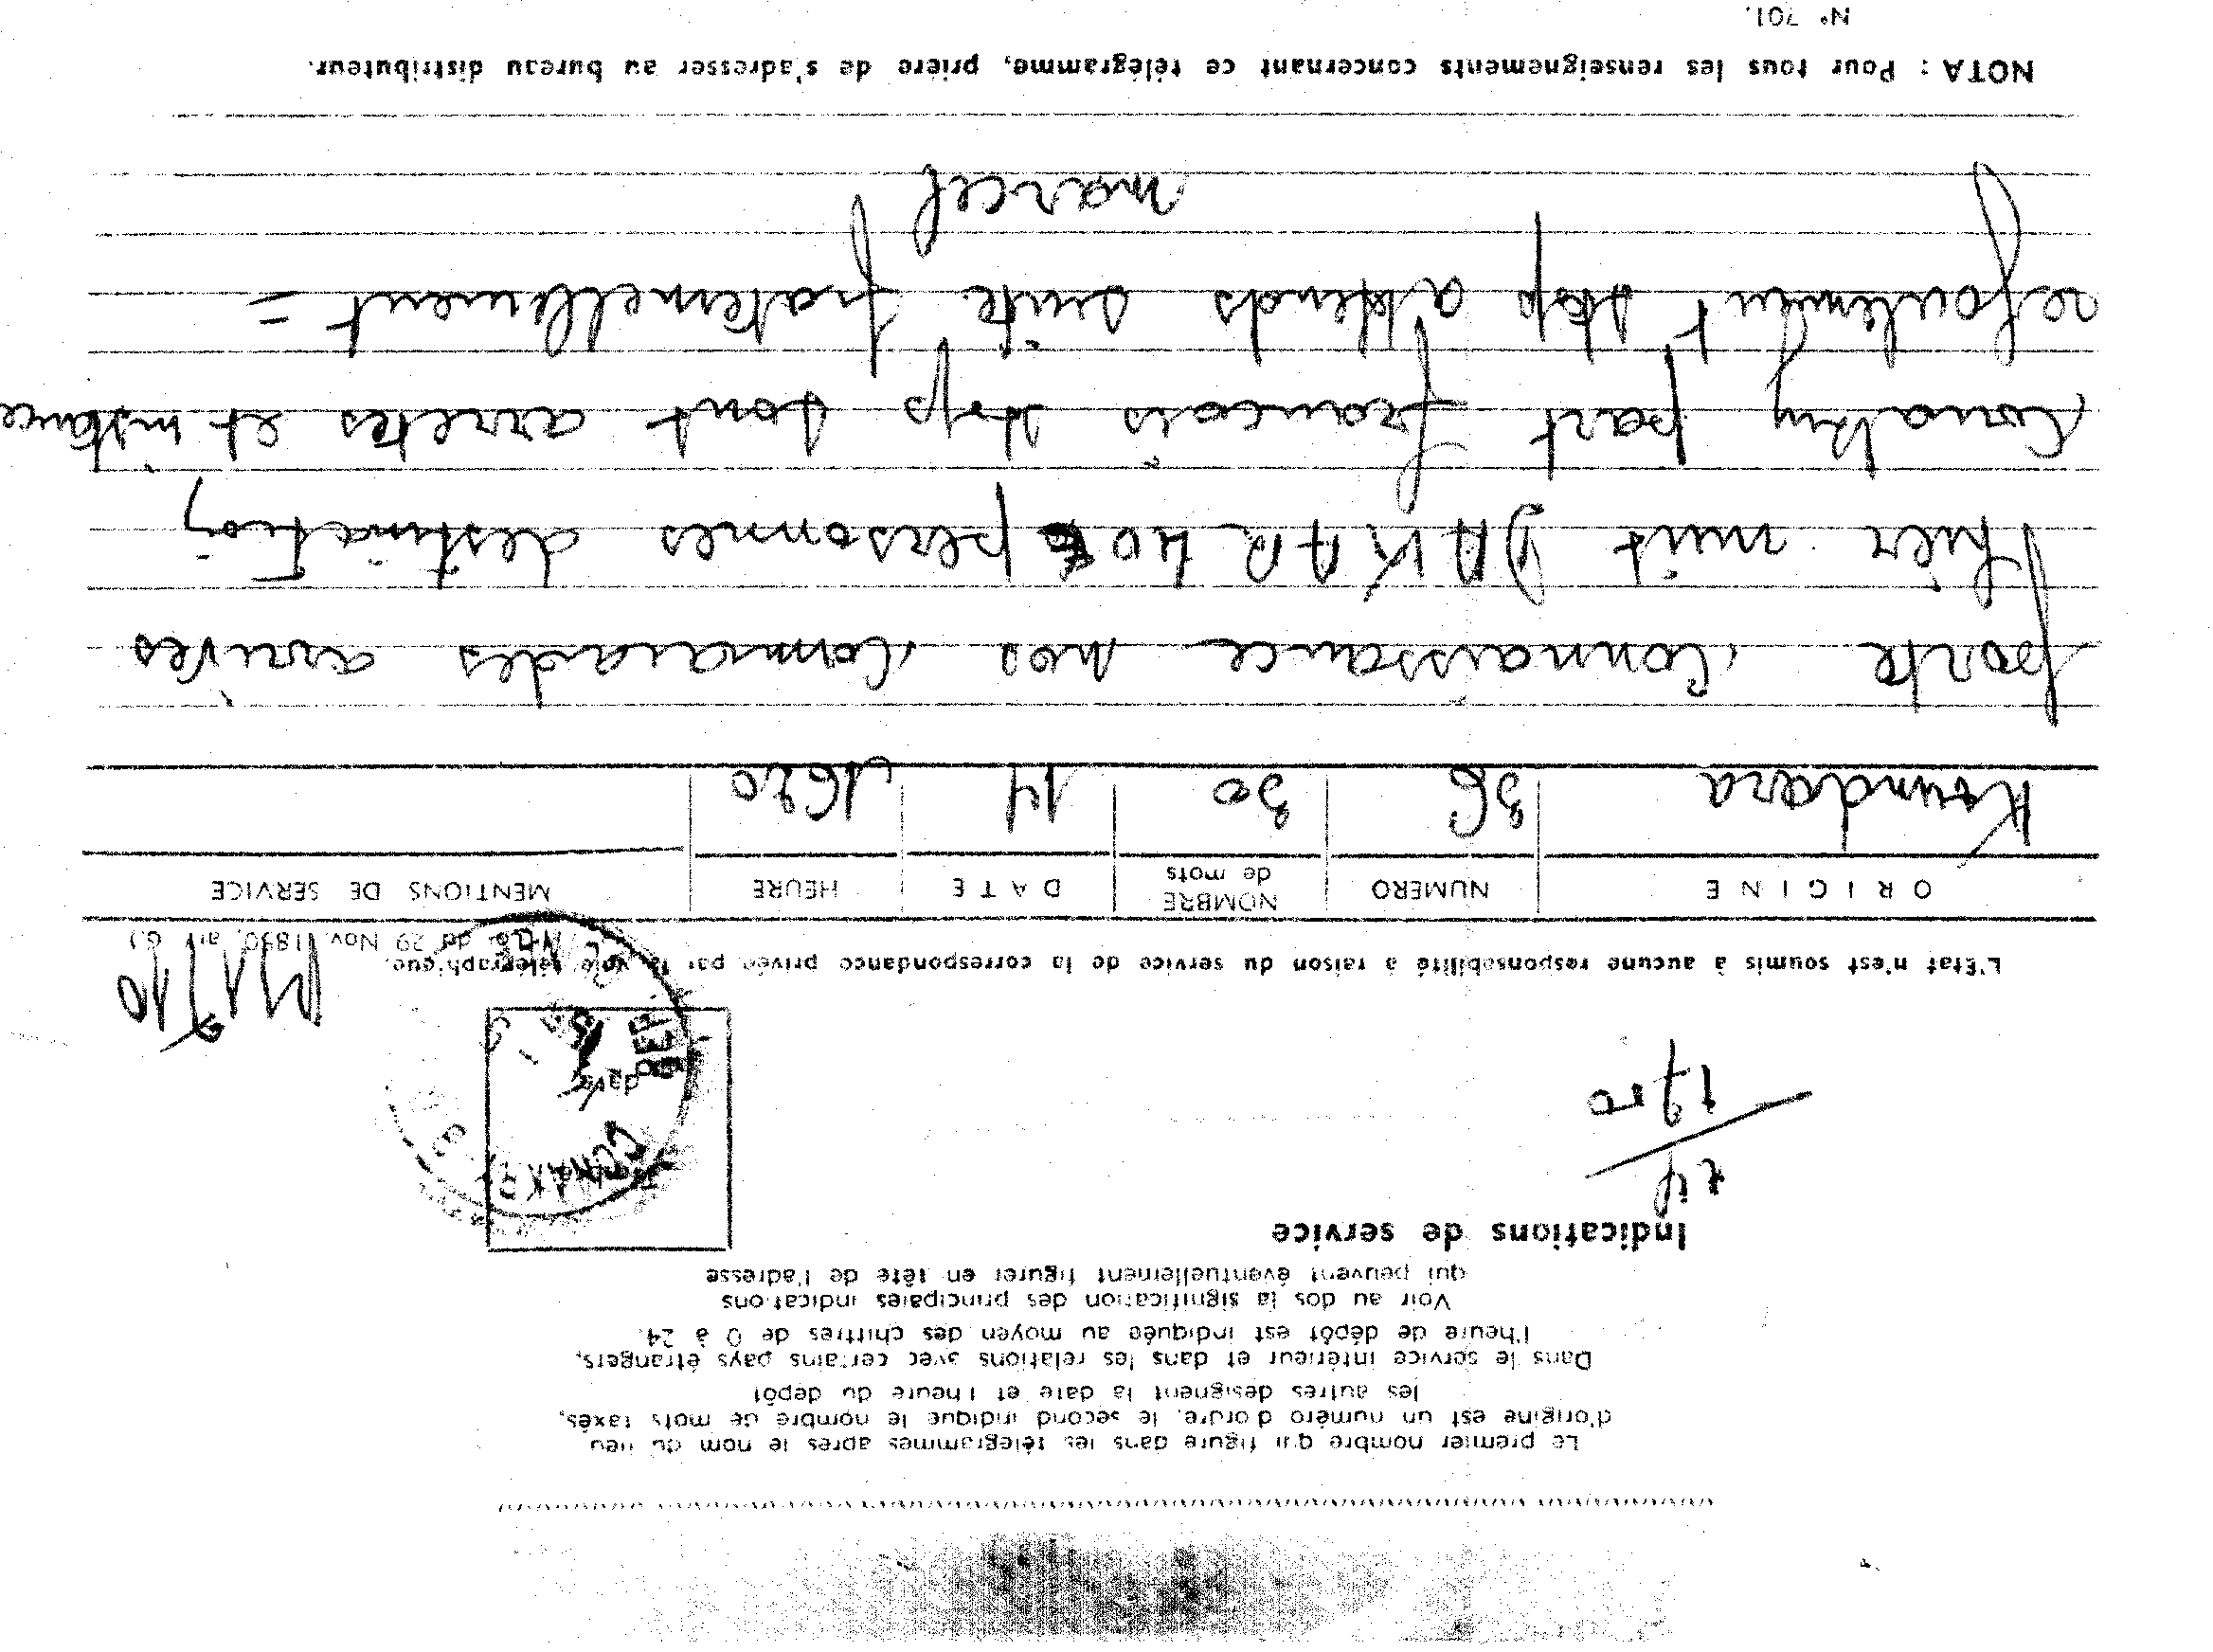 Le premier nombre qui figure dans les télégrammes après le nom du lieu
d'origine est un numéro d'ordre, le second indique le nombre de mots taxés,
les autres désignent la date et l'heure du dépôt
Dans le service intérieur et dans les relations avec certains pays étrangers,
l'heure de dépôt est indiquée au moyen des chiffres de 0 à 24.
Voir au dos la signification des principales indications
qui peuvent éventuellement figurer en tête de l'adresse
Indications de service
CONAKRY
REP GUINEE
L'État n'est soumis à aucune responsabilité à raison du service de la correspondance privée par la voie télégraphique.
du 29 Nov. 1850, art. 6.)
ORIGINE NUMERO NOMBRE de mots DATE HEURE MENTIONS DE SERVICE
Koundara 36 30 14 1620
porte connaissance nos camarades arrivés
hier nuit DAKAR 40 personnes destination
Conakry part francais stop sont arretes et instance
refoulement stop attends suite fraternellement =
marcel
NOTA : Pour tous les renseignements concernant ce télégramme, prière de s'adresser au bureau distributeur.
N° 701.